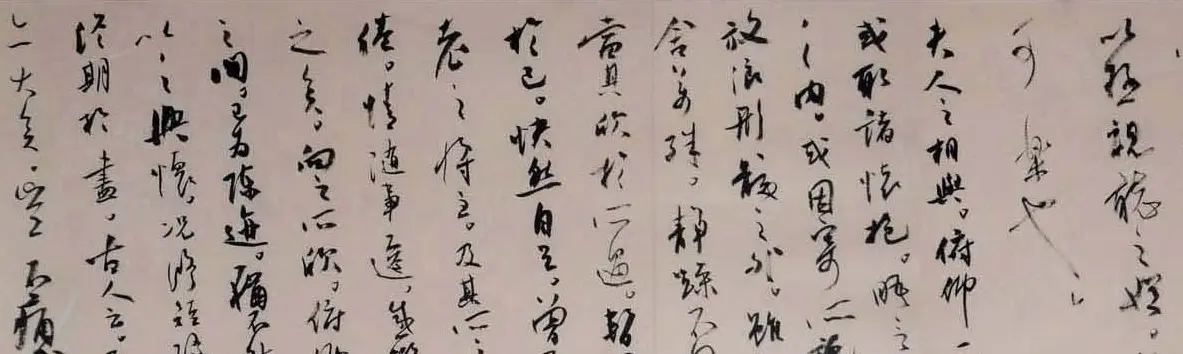 以極視聽之娛。
可樂也、
夫人之相與。俯仰一
或取諸懷抱。晤言
之內。或因寄所託
放浪形骸之外。雖
舍萬殊。靜躁不同
當其欣於所遇。暫
於己。快然自足。曾不
老之將至。及其所之
倦。情隨事遷。感慨
之矣。向之所欣。俯仰
之間。已為陳迹。猶不能
以之興懷。況脩短隨
終期於盡。古人云。
亦大矣。豈不痛